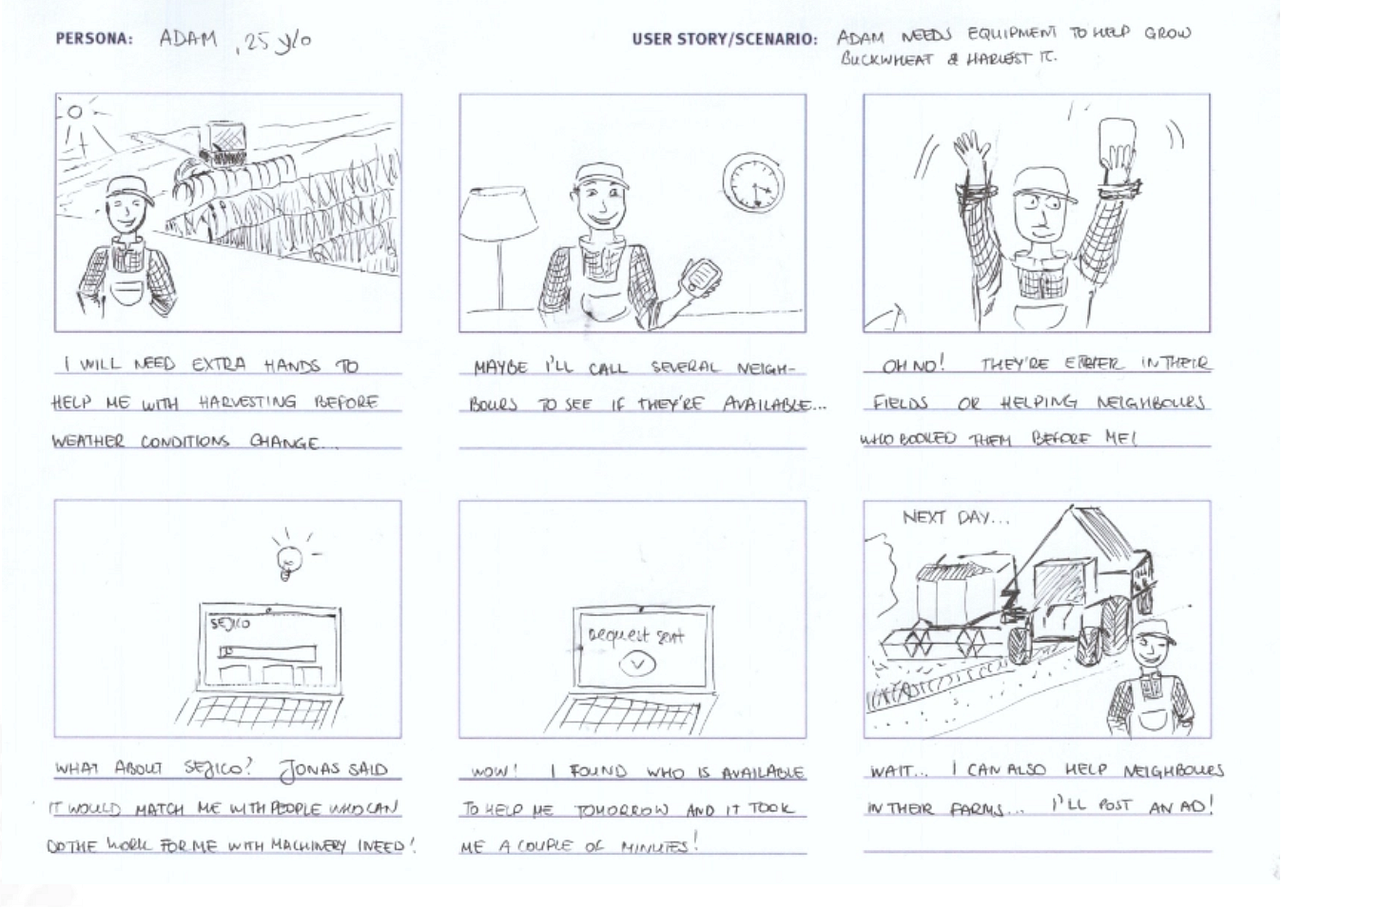 PERSONA: ADAM, 25 y/o
USER STORY/SCENARIO: ADAM NEEDS EQUIPMENT TO HELP GROW
BUCKWHEAT & HARVEST IT.
I WILL NEED EXTRA HANDS TO
HELP ME WITH HARVESTING BEFORE
WEATHER CONDITIONS CHANGE...
MAYBE I'LL CALL SEVERAL NEIGH-
BOURS TO SEE IF THEY'RE AVAILABLE...
OH NO! THEY'RE EITHER IN THEIR
FIELDS OR HELPING NEIGHBOURS
WHO BOOKED THEM BEFORE ME!
SEJICO
WHAT ABOUT SEJICO? JONAS SAID
IT WOULD MATCH ME WITH PEOPLE WHO CAN
DO THE WORK FOR ME WITH MACHINERY I NEED!
Request sent
WOW! I FOUND WHO IS AVAILABLE
TO HELP ME TOMORROW AND IT TOOK
ME A COUPLE OF MINUTES!
NEXT DAY...
WAIT... I CAN ALSO HELP NEIGHBOURS
IN THEIR FARMS... I'LL POST AN AD!